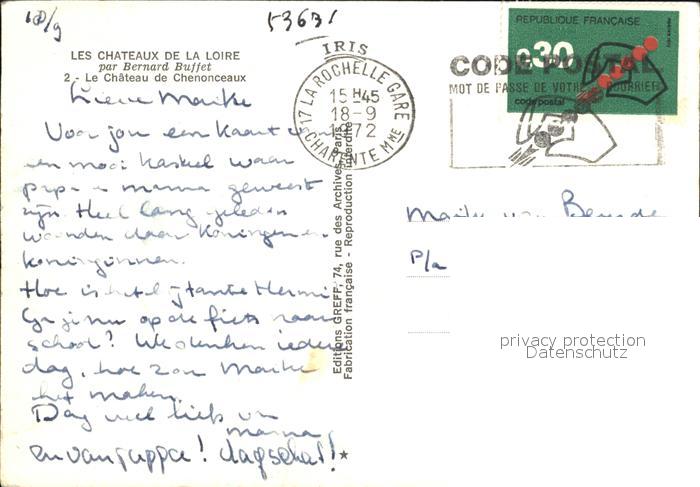 18/9
53631
LES CHATEAUX DE LA LOIRE
par Bernard Buffet
2 - Le Château de Chenonceaux
IRIS
17 LA ROCHELLE GARE
15 H 45
18-9
1972
CHARENTE Mme
REPUBLIQUE FRANÇAISE
0,30
code postal
CODE POSTAL
MOT DE PASSE DE VOTRE COURRIER
Lieve Maike
Voor jou een kaart van
een mooi kasteel waar
papa en mama geweest
zijn. Heel lang geleden
woonden daar Koningen en
koninginnen.
Hoe is het bij tante Hermi
Ga je nu op de fiets naar
school? We denken iedere
dag, hoe zou Maike
het maken.
Dag veel liefs van
mama
en van pappa! dag schat!
Editions GREFF, 74, rue des Archives, Paris
Fabrication française - Reproduction interdite
Maike van
P/a
privacy protection
Datenschutz